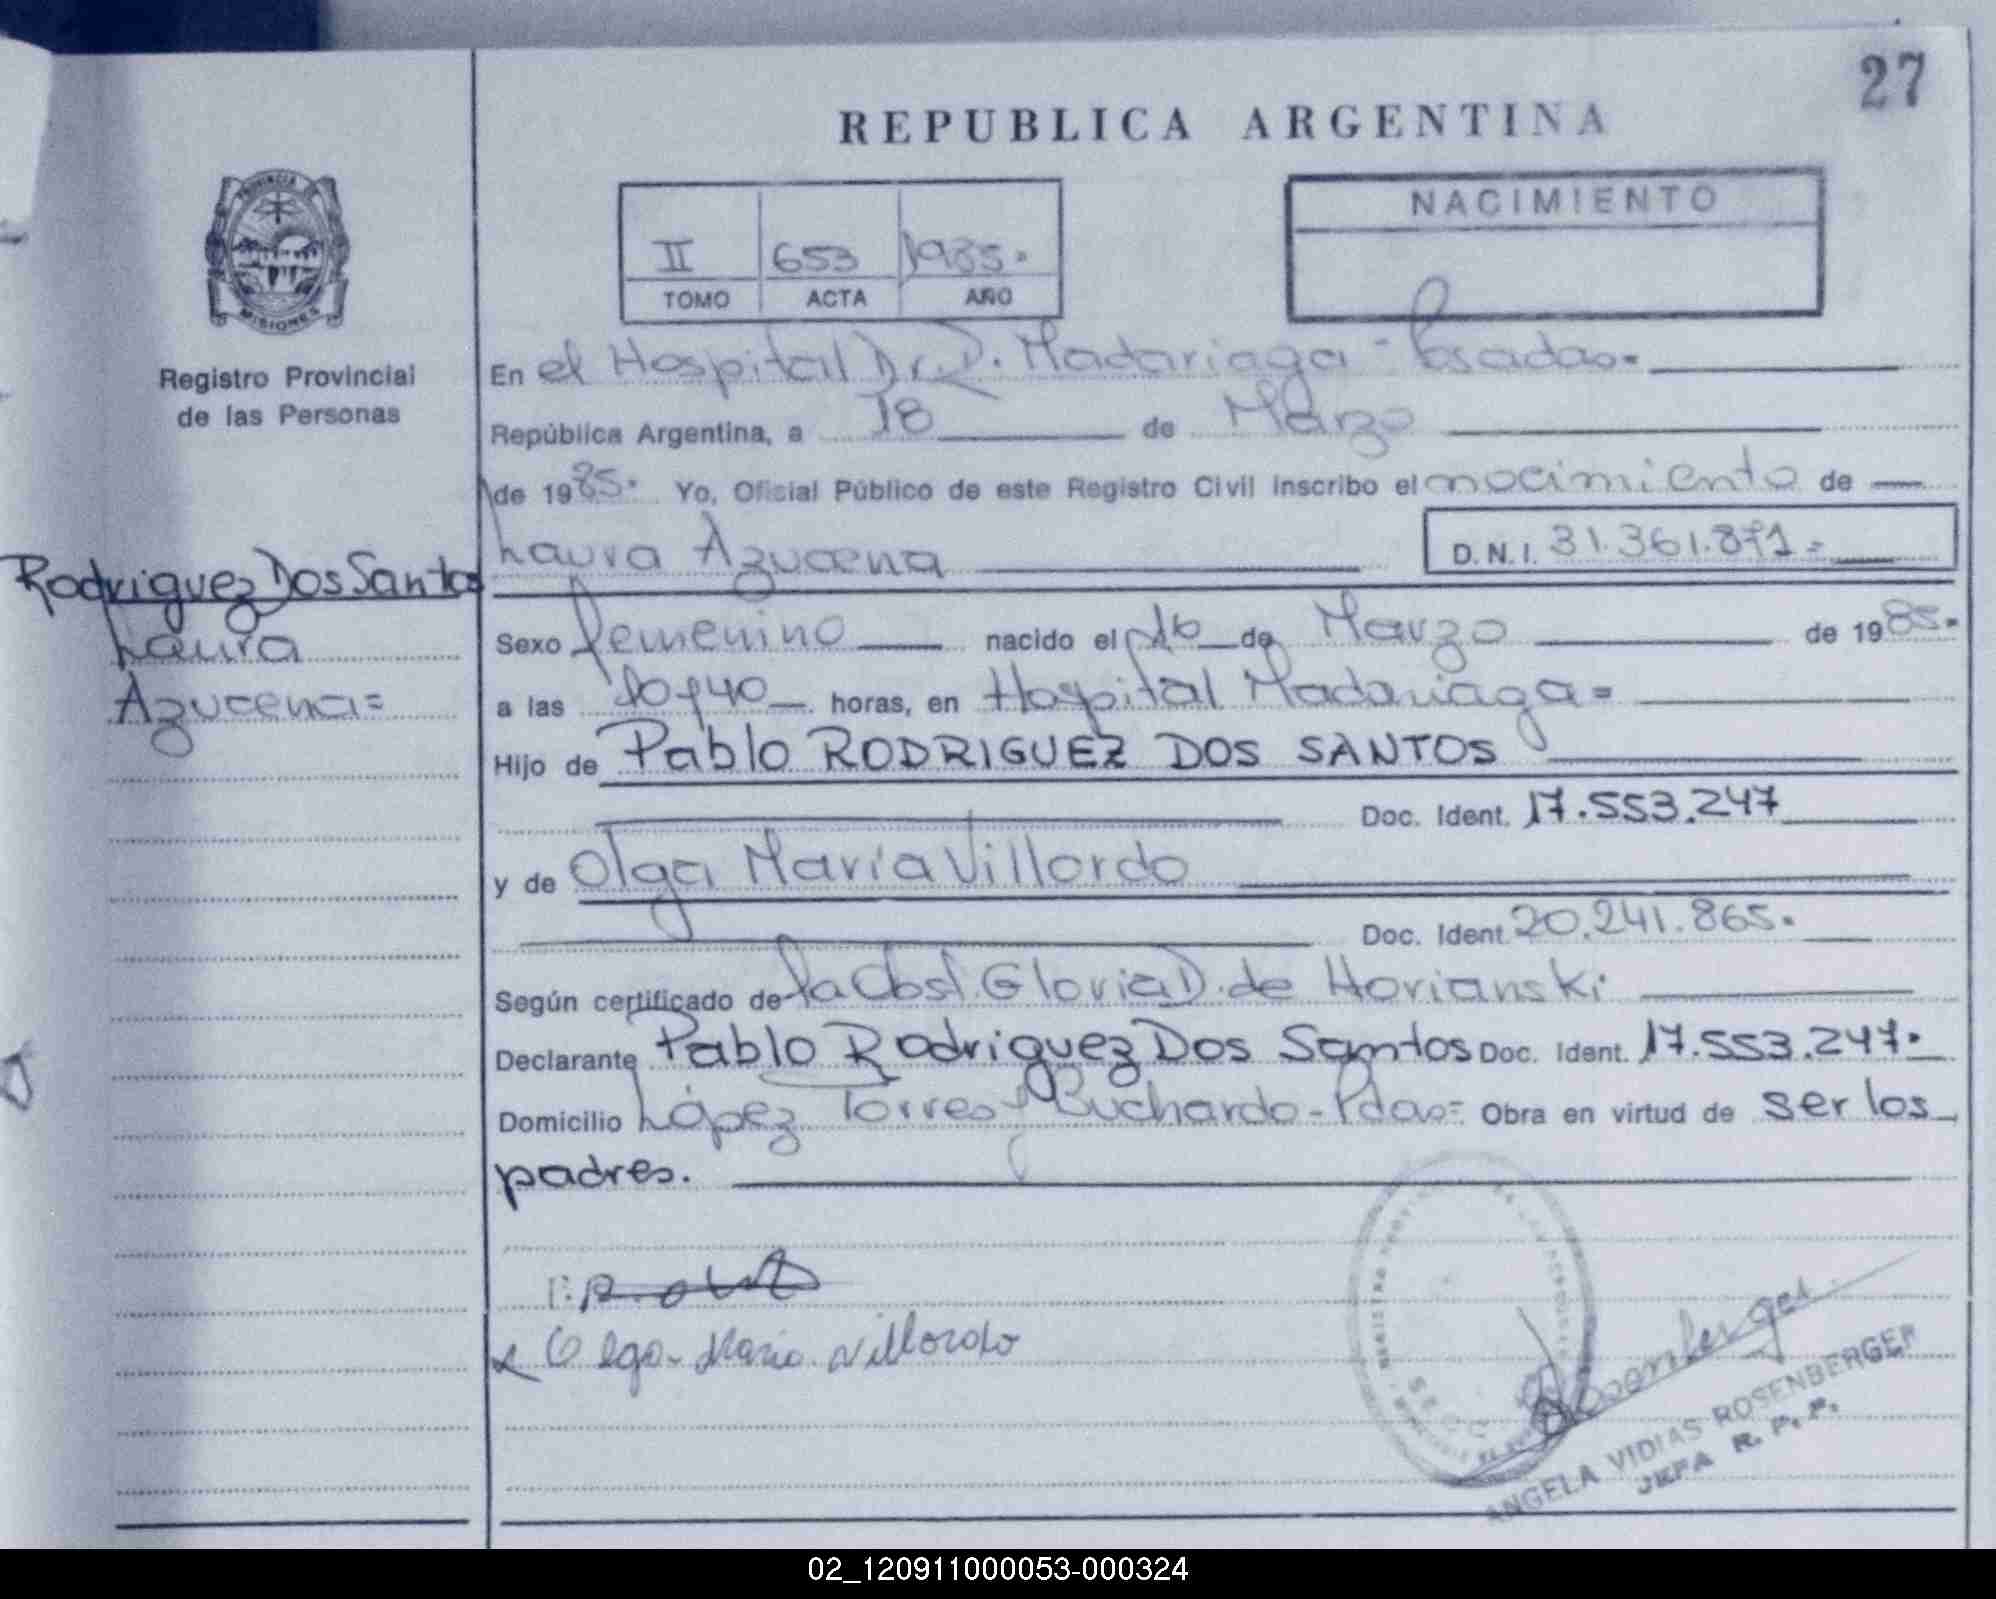 27
REPUBLICA ARGENTINA
PROVINCIA DE
MISIONES
Registro Provincial
de las Personas
Rodriguez Dos Santos
Laura
Azucena=
II 653 1985.
TOMO ACTA AÑO
NACIMIENTO
En el Hospital Dr. R. Madariaga - Posadas=
República Argentina, a 18 de Marzo
de 1985. Yo, Oficial Público de este Registro Civil inscribo el nacimiento de
Laura Azucena D.N.I. 31.361.871=
Sexo femenino nacido el 16 de Marzo de 1985.
a las 10y40 horas, en Hospital Madariaga=
Hijo de Pablo RODRIGUEZ DOS SANTOS
Doc. Ident. 17.553.247
y de Olga María Villordo
Doc. Ident. 20.241.865.
Según certificado de la Obst. Gloria D. de Horianski
Declarante Pablo Rodriguez Dos Santos Doc. Ident. 17.553.247.
Domicilio López Torres y Buchardo - Pdas= Obra en virtud de ser los
padres.
Olga Maria Villordo
Rosenberger
SECC
ANGELA VIDIAS ROSENBERGER
JEFA R. P. P.
02_120911000053-000324